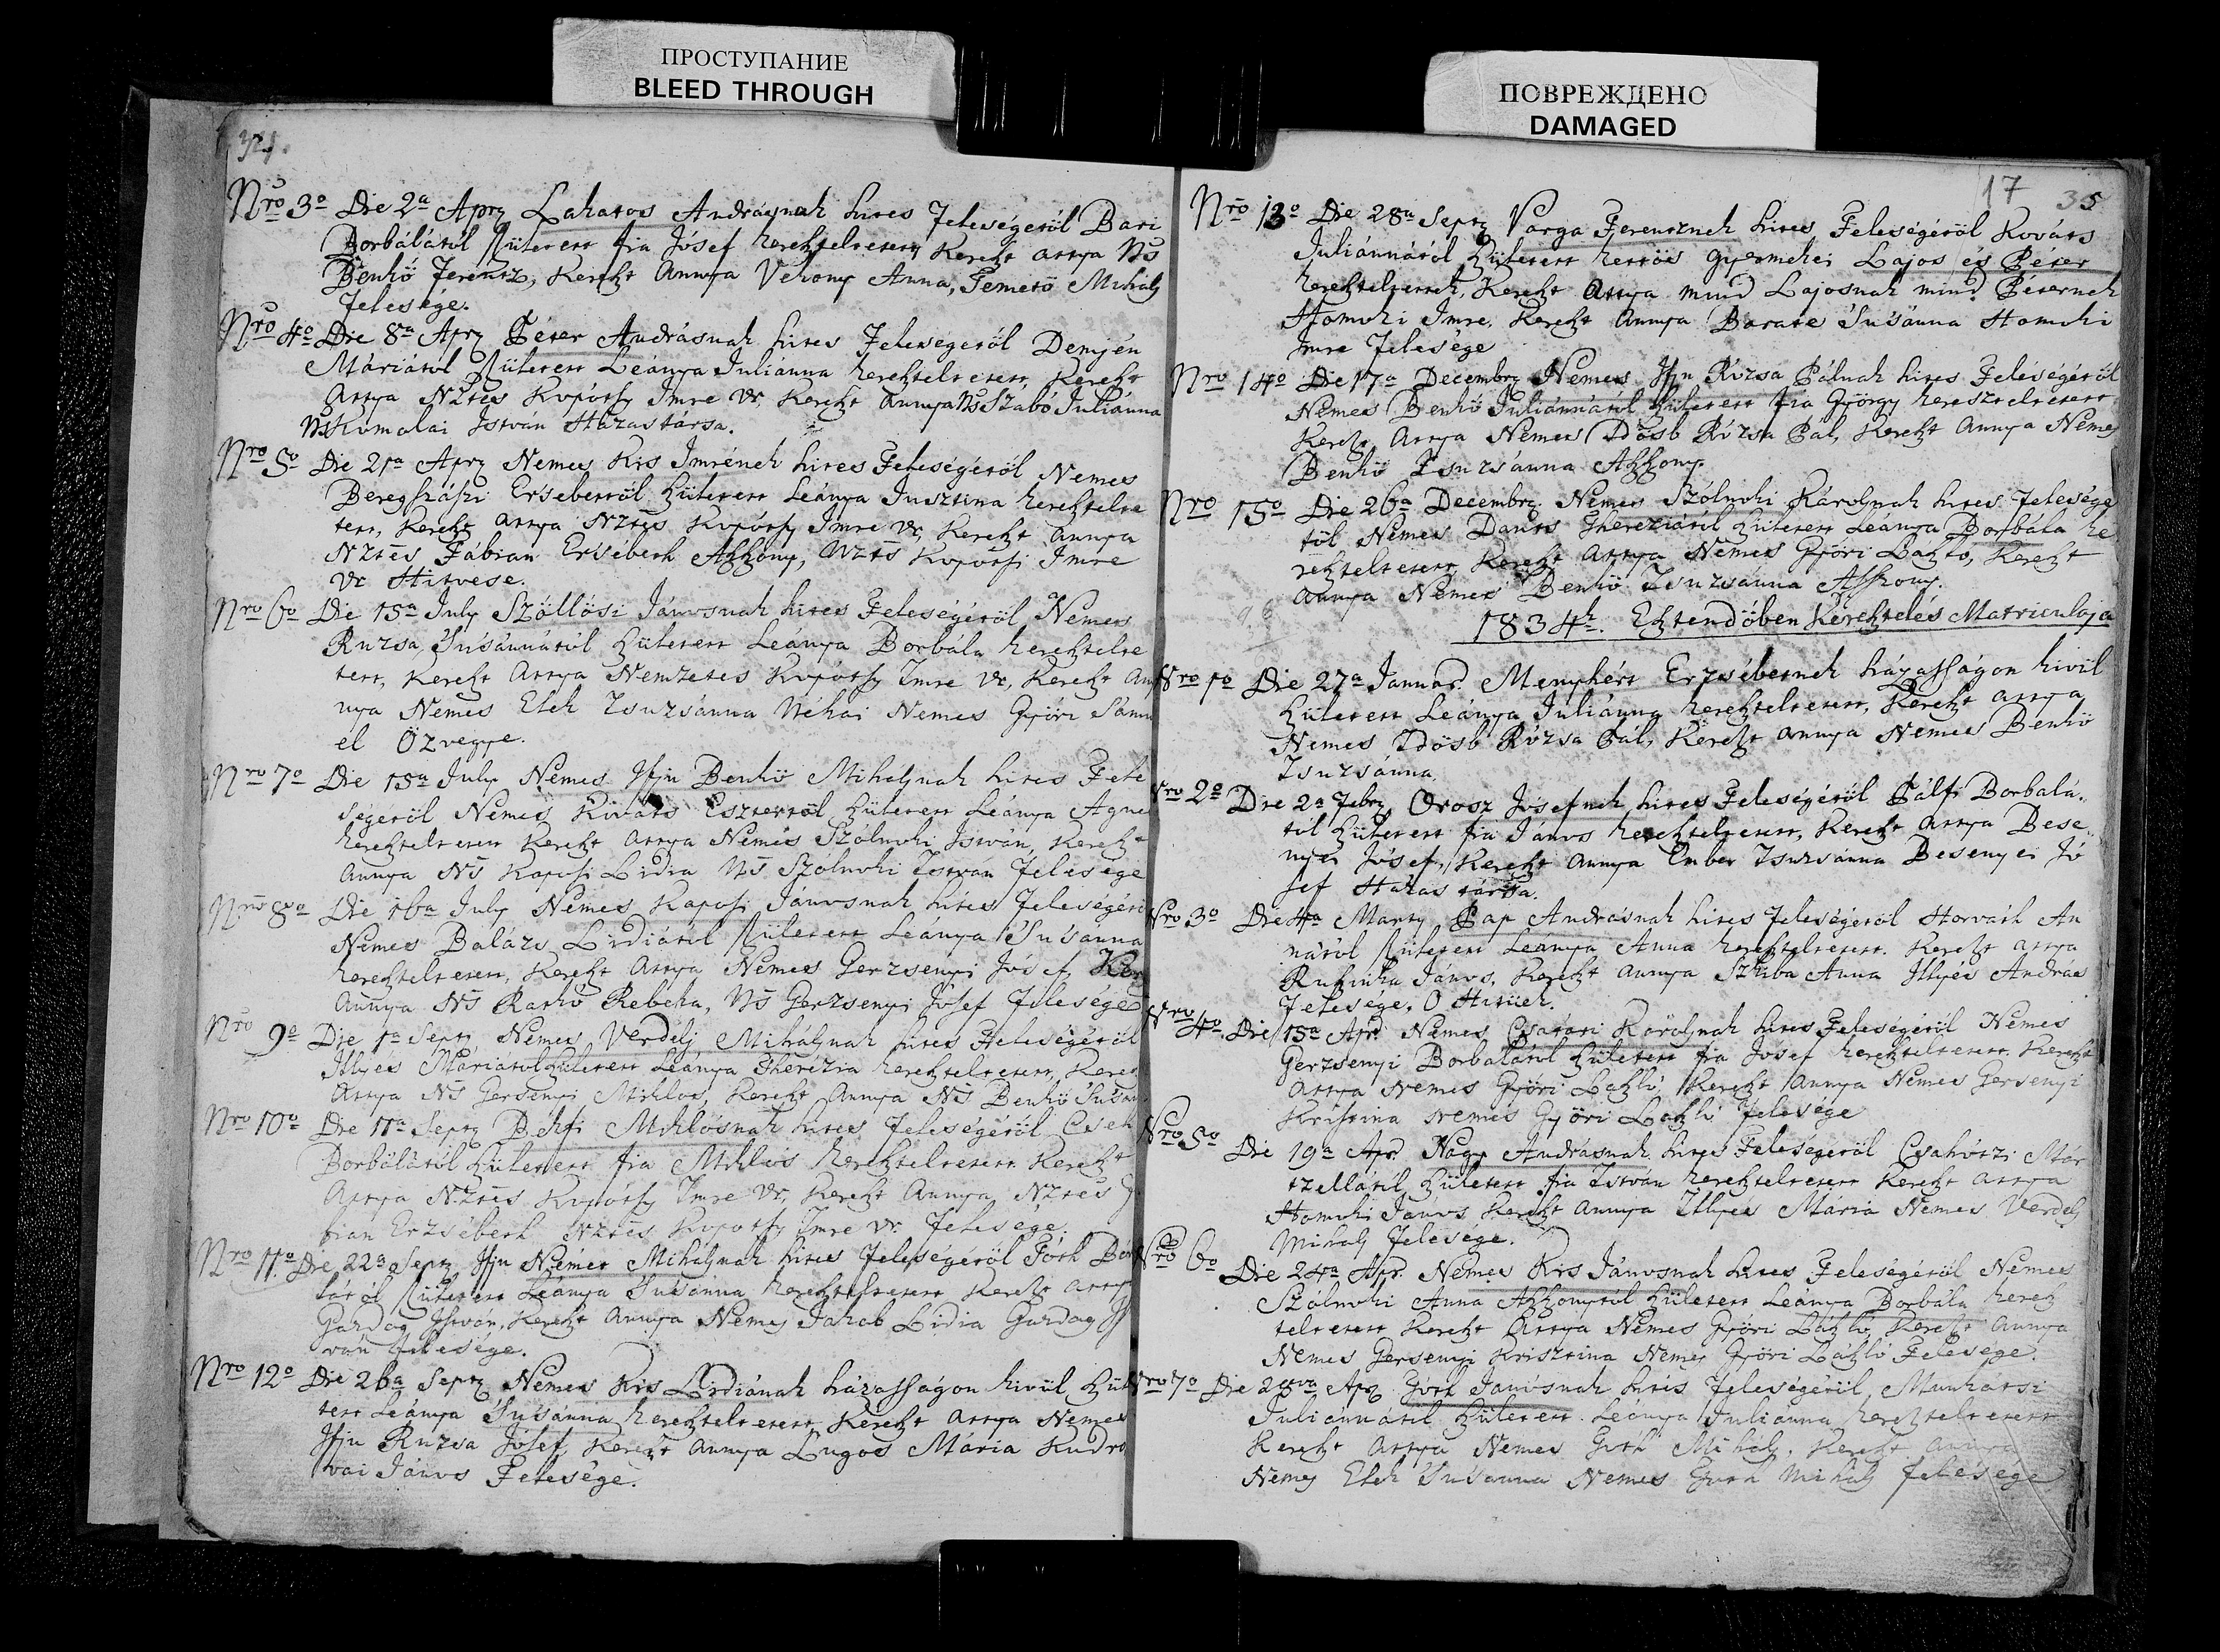 ПРОСТУПАНИЕ
BLEED THROUGH
ПОВРЕЖДЕНО
DAMAGED
34.
Nro 3o Die 2a Apr Lakatos Andrásnak hites Feleségéről Bari
Borbálától Született fia Jósef kereszteltetett, Kereszt Attya Ns
Benkö Ferentz, Kereszt Annya Vekony Anna, Temető Mihály
felesége.
Nro 4o Die 8a Apr Péter Andrásnak hites Feleségéről Demjén
Máriától Született Leánya Juliánna kereszteltetett, Kereszt
Attya Nztes Kopótsy Imre Ur, Kereszt Annya Ns Szabó Juliánna
Ns Komolai István Házastársa.
Nro 5o Die 21a Apr Nemes Kis Imrének hites Feleségéről Nemes
Beregszászi Ersebettöl Született Leánya Jusztina keresztelte
tett, Kereszt Attya Nztes Kopótsy Imre Ur, Kereszt Annya
Nztes Fábian Ersébeth Aszszony, Nztes Kopótsi Imre
Ur Hitvese.
Nro 6o Die 15a July Szöllősi Jánosnak hites Feleségéről Nemes
Ruzsa Susánnától Született Leánya Borbála keresztelte
tett, Kereszt Attya Nemzetes Kopótsy Imre Ur, Kereszt An
nya Nemes Elek Zsuzsánna Néhai Nemes Györi Sámu
el Özvegye.
Nro 7o Die 15a July Nemes Ifju Benkö Mihálynak hites Fele
ségéről Nemes Kováts Esztertöl Született Leánya Agnes
kereszteltetett Kereszt Attya Nemes Szólnoki István, Kereszt
Annya Ns Kaposi Lidia Ns Szólnoki István Felesége
Nro 8o Die 16a July Nemes Kaposi Jánosnak hites Feleségéről
Nemes Balázs Lidiától Született Leánya Susánna
kereszteltetett, Kereszt Attya Nemes Gerzsenyi Jósef, Ker
Annya Ns Ratkó Rebeka, Ns Gerzsenyi Jósef Felesége
Nro 9o Die 1a Sept Nemes Verdélj Mihálynak hites Feleségéről
Illyés Máriától Született Leánya Therézia kereszteltetett, Keresz
Attya Ns Gersenyi Miklos, Kereszt Annya Ns Benkö Susán
Nro 10o Die 11a Sept Békfi Miklósnak hites Feleségéről Cseh
Borbálától Született fia Miklós kereszteltetett Kereszt
Attya Nztes Kopótsy Imre Ur, Kereszt Annya Nztes
bian Erzsébeth Nztes Kopotsy Imre Ur. Felesége.
Nro 11o Die 22a Sept Ifju Német Mihálynak hites Feleségéről Tóth Bor
lától Született Leánya Susánna kereszteltetett Kereszt Attya
Gazdag István, Kereszt Annya Nemes Jakab Lidia Gazdag Ist
ván felesége.
Nro 12o Die 26a Sept Nemes Kis Lidiának házasságon kivül Szüle
tett Leánya Susánna kereszteltetett, Kereszt Attya Nemes
Ifju Ruzsa Jósef, Kereszt Annya Lugos Mária Kudro
vai János Felesége.
17 35
Nro 13o Die 28a Sept Varga Ferentznek hites Feleségéről Kováts
Juliánnától Született kettös gyermekei Lajos és Péter
kereszteltettek, Kereszt Attya mind Lajosnak mind Péternek
Homoki Imre, Kereszt Annya Barate Susánna Homoki
Imre Felesége
Nro 14o Die 17a Decembr Nemes Ifju Rózsa Pálnak hites Feleségéről
Nemes Benkö Juliánnától Született fia György kereszteltetett
Kereszt Attya Nemes Idösb Rózsa Pál, Kereszt Annya Nemes
Benkö Zsuzsánna Aszszony.
Nro 15o Die 26a Decembr Nemes Szólnoki Károlynak hites Felesége
től Nemes Dants Thereziától Született Leánya Borbála ke
reszteltetett Kereszt Attya Nemes Györi László, Kereszt
Annya Nemes Benkö Zsuzsánna Aszszony.
1834k. Esztendőben Keresztelés Matriculaja
Nro 1o Die 27a Januar. Menyhért Erzsébetnek házasságon kivül
Született Leánya Juliánna kereszteltetett, Kereszt Attya
Nemes Idösb Rózsa Pál, Kereszt Annya Nemes Benkö
Zsuzsánna.
Nro 2o Die 2a Febr Orosz Jósefnek hites Feleségéről Pálfi Borbalá
tól Született fia János kereszteltetett, Kereszt Attya Bese
nyei Jósef, Kereszt Annya Ember Zsuzsánna Besenyei Jó
sef Házastársa.
Nro 3o Die 4a Marty Pap Andrásnak hites Feleségéről Horváth An
nától Született Leánya Anna kereszteltetett. Kereszt Attya
Ruszinka János, Kereszt Annya Szkiba Anna Illyés András
Felesége. O Hitüek.
Nro 4o Die 15a Apr. Nemes Csatári Károlynak hites Feleségéről Nemes
Gerzsenyi Borbalától Született fia Jósef kereszteltetett. Kereszt
Attya Nemes Györi László, Kereszt Annya Nemes Gersenyi
Kristina Nemes Györi László Felesége
Nro 5o Die 19a Apr. Nagy Andrásnak hites Feleségéről Csakótzi Már
tzellától Született fia István kereszteltetett Kereszt Attya
Homoki János Kereszt Annya Illyés Mária Nemes Verdélj
Mihály Felesége.
Nro 6o Die 24a Apr. Nemes Kis Jánosnak hites Feleségéről Nemes
Szólnoki Anna Aszszonytól Született Leánya Borbála keresz
teltetett Kereszt Attya Nemes Györi László, Kereszt Annya
Nemes Gersenyi Krisztina Nemes Györi László Felesége.
Nro 7o Die Apr Góth Jánosnak hites Feleségéről Munkátsi
Juliánnától Született Leánya Juliánna kereszteltetett
Kereszt Attya Nemes Guth Mihály. Kereszt Annya
Nemes Elek Susanna Nemes Guth Mihály felesége